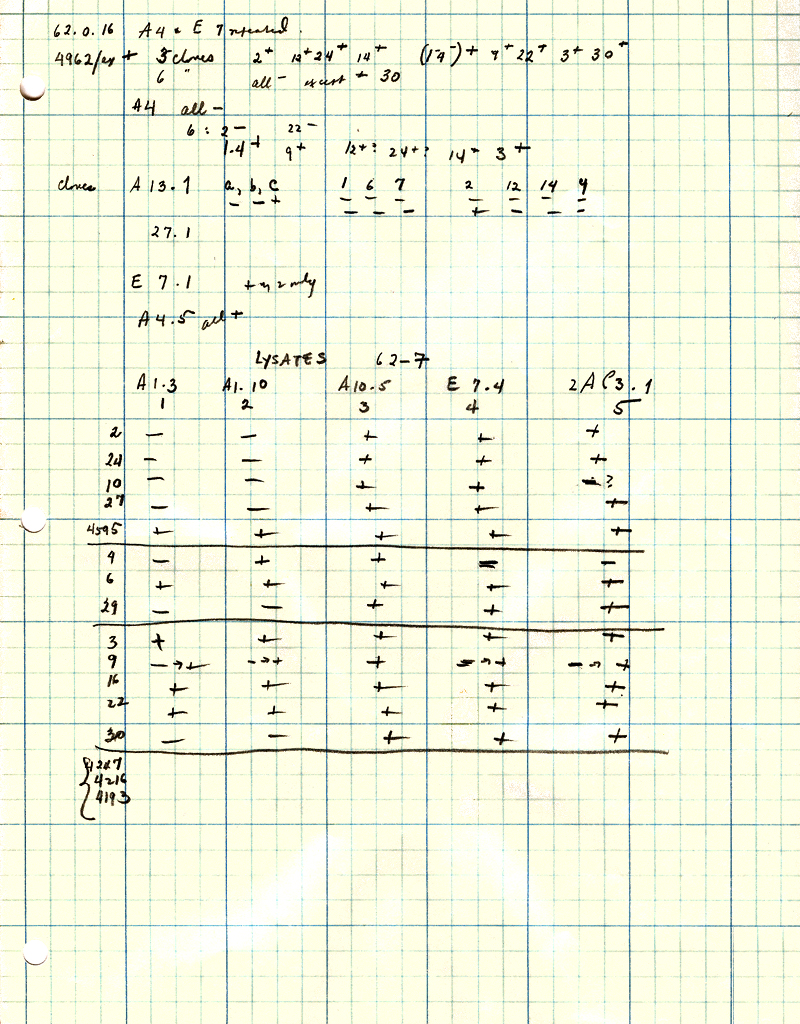 62.0.16 A4 & E 7 repeated.
4962/ 5 clones 2+ 12+ 24+ 14+ (1-9-)+ 9+ 22+ 3+ 30+
6 " all - except + 30
A4 all -
6 : 2- 22-
1.4+ 9+ 12+? 24+? 14+ 3+
clones A 13.1 a, b, c 1 6 7 2 12 14 9
- - + - - - - - - -
- - - + - - -
27.1
E 7.1 + only
A4.5 all+
LYSATES 62-7
A1.3 A1.10 A10.5 E 7.4 3.1
1 2 3 4 5
2 - - + + +
24 - - + + +
10 - - + + - ?
27 - - + + +
4595 + + + + +
9 - + + = -
6 + + + + +
29 - - + + +
3 + + + + +
9 - → + - → + + - → + - → +
16 + + + + +
22 + + + + +
30 - - + + +
4247
4216
4193